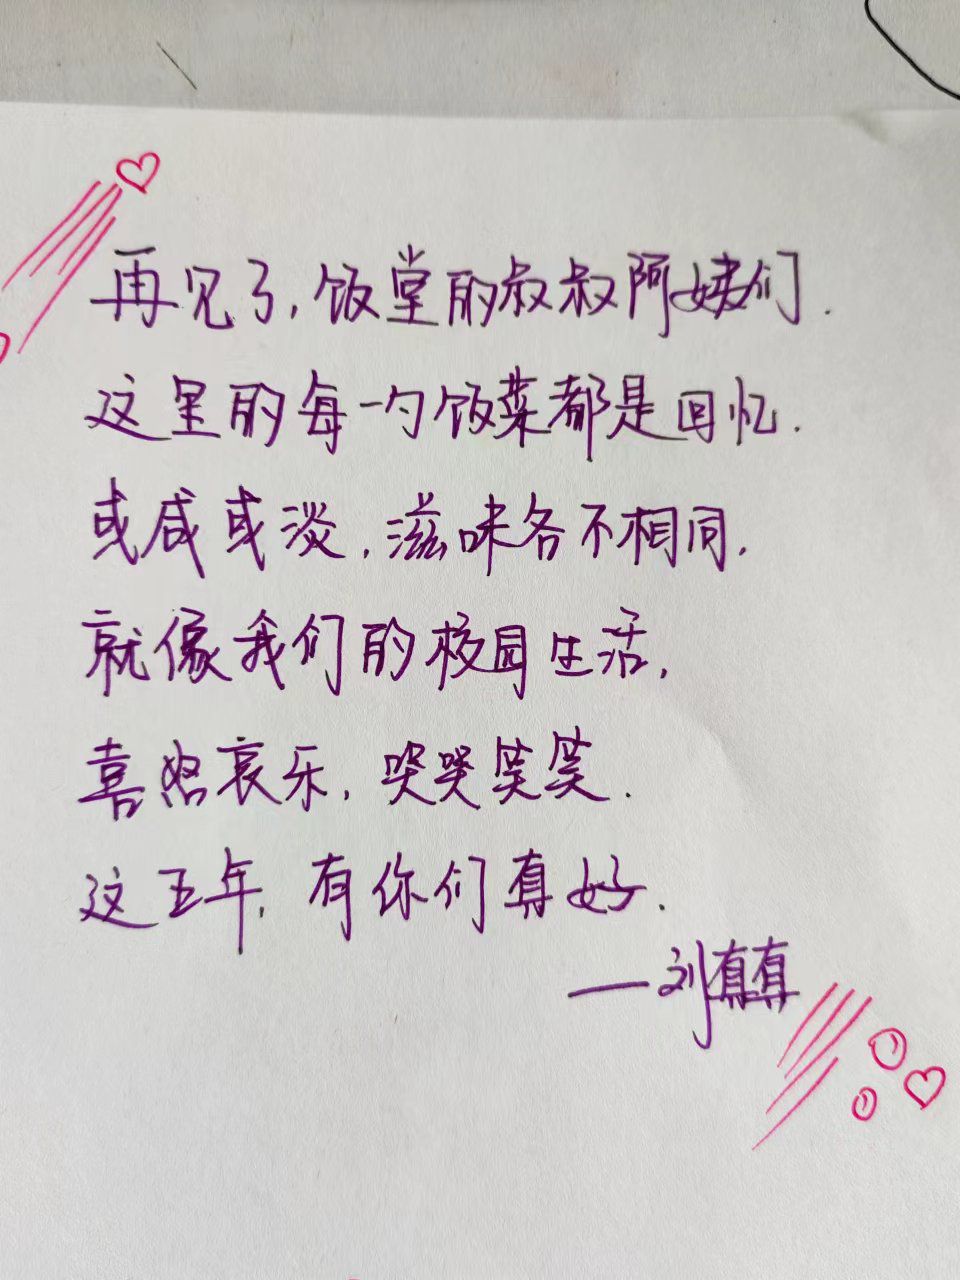 再见了,饭堂的叔叔阿姨们.
这里的每一勺饭菜都是回忆.
或咸或淡,滋味各不相同,
就像我们的校园生活,
喜怒哀乐,哭哭笑笑.
这五年,有你们真好.
——刘真真